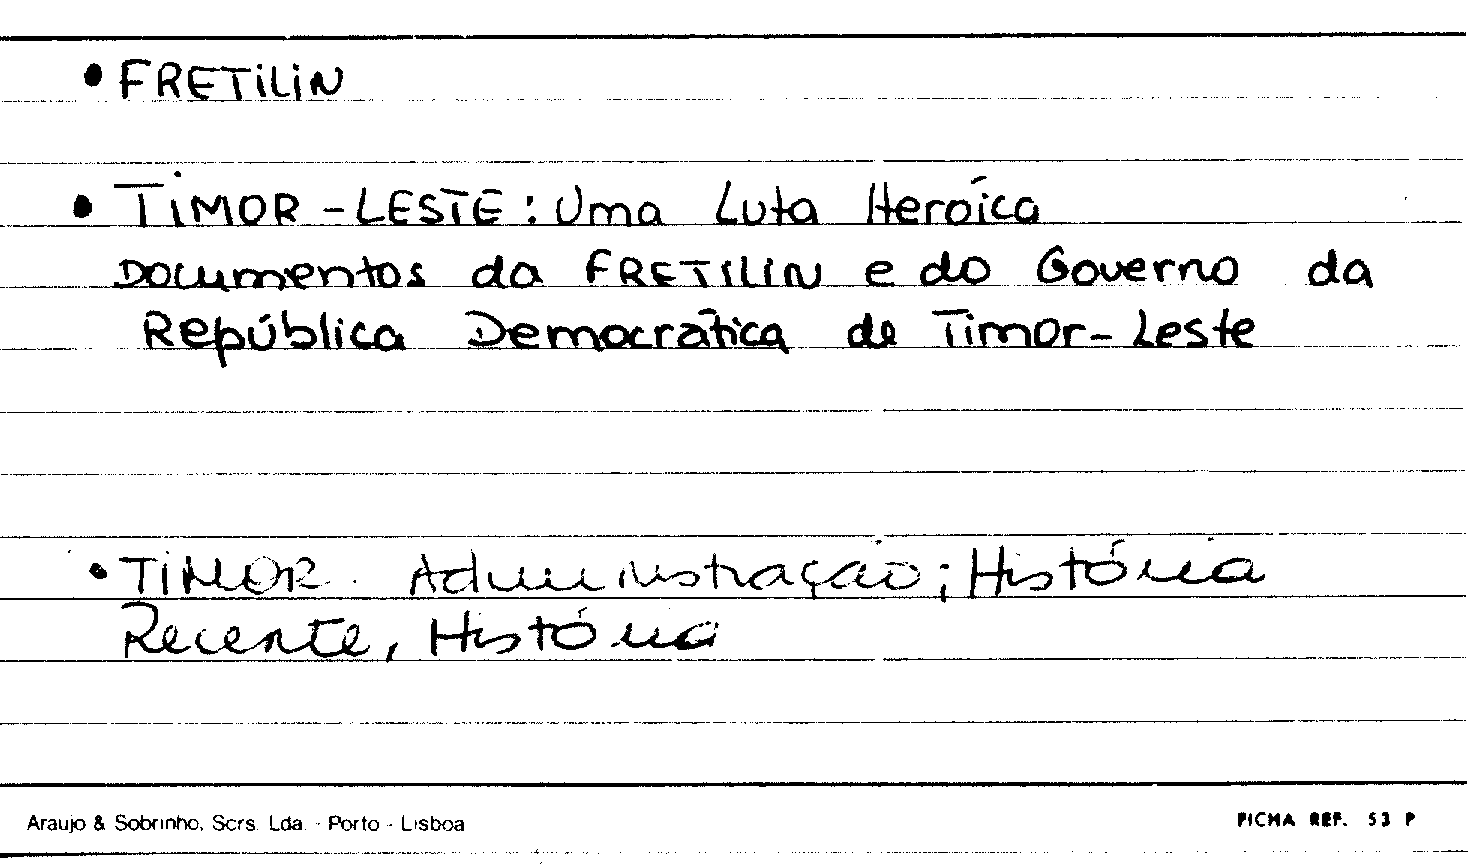 • FRETILIN
• TIMOR-LESTE: Uma Luta Heroíca
Documentos da FRETILIN e do Governo da
República Democrática de Timor-Leste
• TIMOR. Administração; História
Recente, História
Araujo & Sobrinho, Scrs. Lda. - Porto - Lisboa
FICHA REF. 53 P